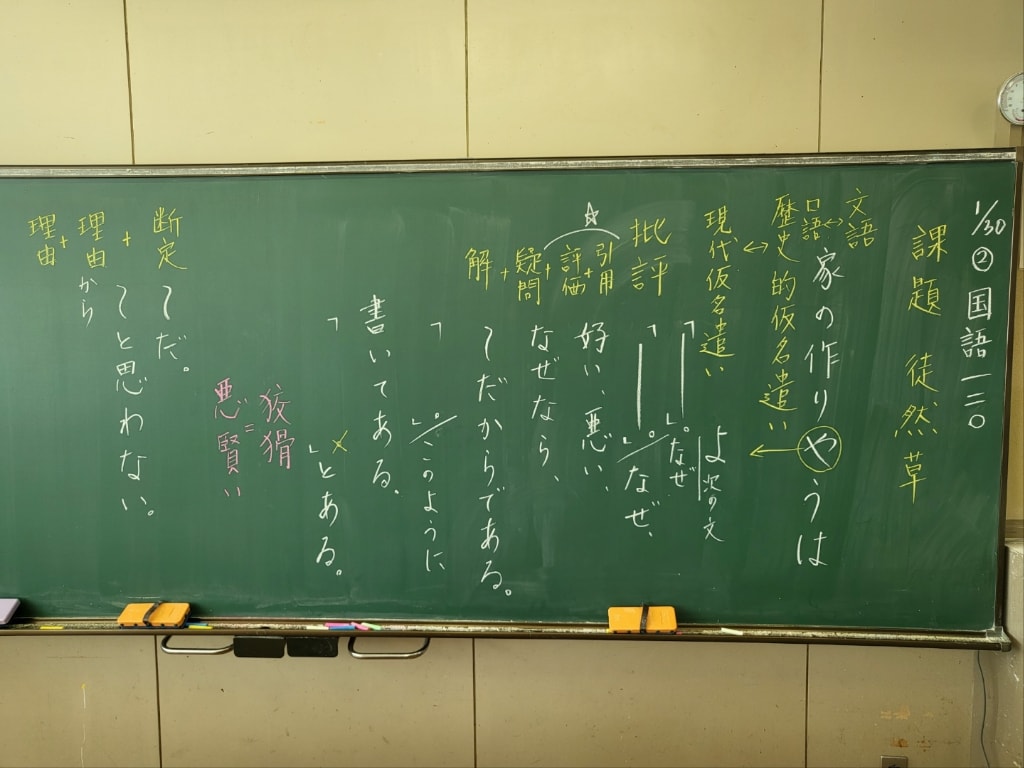 1/30 ② 国語一三〇
課題 徒然草
文語
↔
口語
家の作りやうは
歴史的仮名遣い
↔
現代仮名遣い
よ
次の文
批評
「 」。なぜ
「 」。なぜ、
☆
引用
+
評価
+
疑問
+
解
好い、悪い、
なぜなら、
〜だからである。
「 」。このように
書いてある、
「 」とある。
×
狡猾
=
悪賢い
断定
〜だ。
+
〜と思わない。
理由から
+
理由